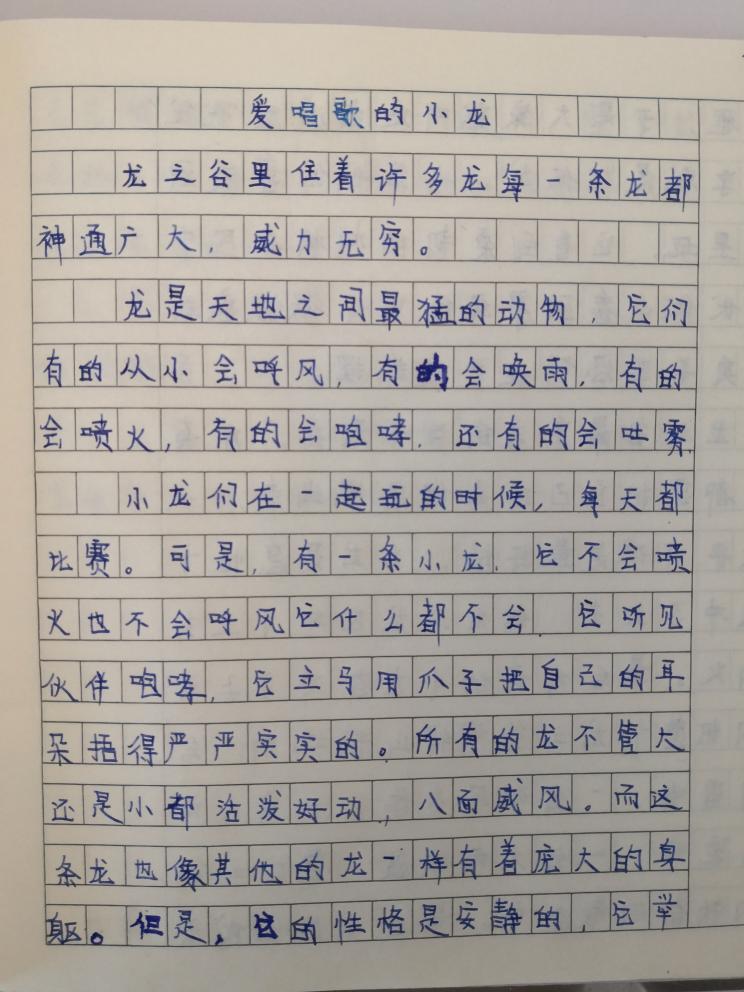 爱唱歌的小龙
龙之谷里住着许多龙每一条龙都
神通广大，威力无穷。
龙是天地之间最猛的动物，它们
有的从小会呼风，有的会唤雨，有的
会喷火，有的会咆哮，还有的会吐雾，
小龙们在一起玩的时候，每天都
比赛。可是，有一条小龙，它不会喷
火也不会呼风它什么都不会，它听见
伙伴咆哮，它立马用爪子把自己的耳
朵捂得严严实实的。所有的龙不管大
还是小都活泼好动，八面威风。而这
条龙也像其他的龙一样有着庞大的身
躯。但是，它的性格是安静的，它举